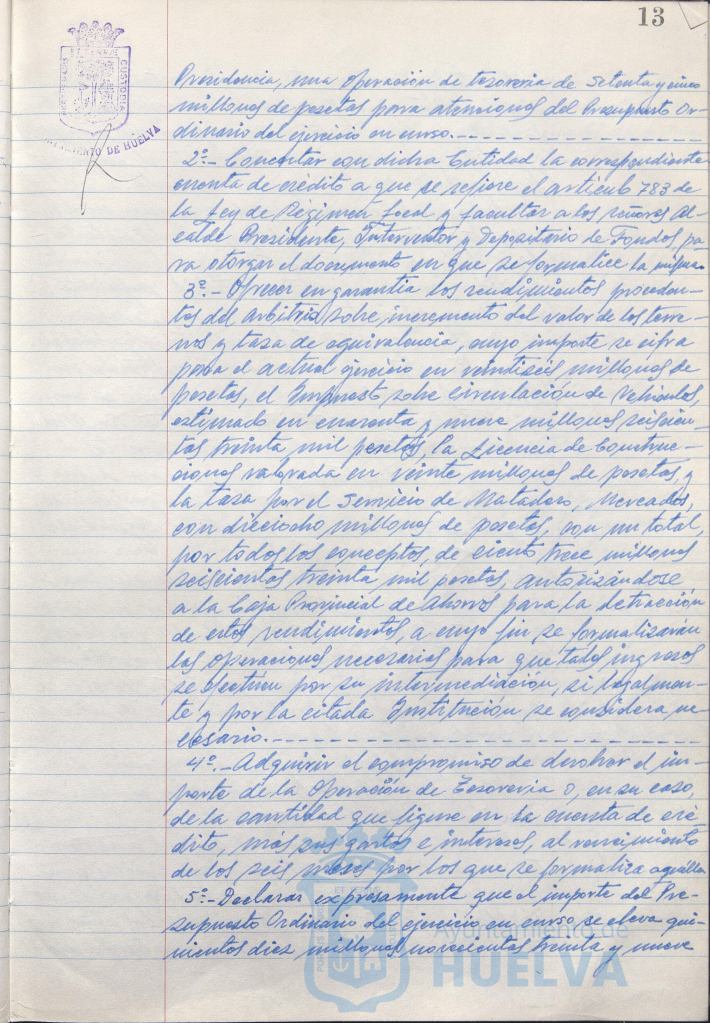 13
CUSTODIA
AYUNTAMIENTO DE HUELVA
Presidencia, una operación de tesorería de setenta y cinco
millones de pesetas para atenciones del Presupuesto Or-
dinario del ejercicio en curso.
2º.- Concertar con dicha Entidad la correspondiente
cuenta de crédito a que se refiere el artículo 783 de
la Ley de Régimen Local y facultar a los señores Al-
calde Presidente, Interventor y Depositario de Fondos, pa-
ra otorgar el documento en que se formalice la misma.
3º.- Ofrecer en garantía los rendimientos proceden-
tes del arbitrio sobre incremento del valor de los terre-
nos y tasa de equivalencia, cuyo importe se cifra
para el actual ejercicio en veintiseis millones de
pesetas, el Impuesto sobre circulación de Vehículos,
estimado en cuarenta y nueve millones seiscien-
tas treinta mil pesetas, la Licencia de Construc-
ciones valorada en veinte millones de pesetas, y
la tasa por el Servicio de Matadero, Mercados,
con dieciocho millones de pesetas, con un total,
por todos los conceptos, de ciento trece millones
seiscientas treinta mil pesetas, autorizándose
a la Caja Provincial de Ahorros para la detracción
de estos rendimientos, a cuyo fin se formalizarán
las operaciones necesarias para que tales ingresos
se efectúen por su intermediación, si legalmen-
te y por la citada Institución se considera ne-
cesario.
4º.- Adquirir el compromiso de devolver el im-
porte de la Operación de Tesorería o, en su caso,
de la cantidad que figure en la cuenta de cré-
dito, más sus gastos e intereses, al vencimiento
de los seis meses por los que se formaliza aquella.
5º.- Declarar expresamente que el importe del Pre-
supuesto Ordinario del ejercicio en curso se eleva qui-
nientos diez millones novecientas treinta y nueve
Ayuntamiento de
HUELVA